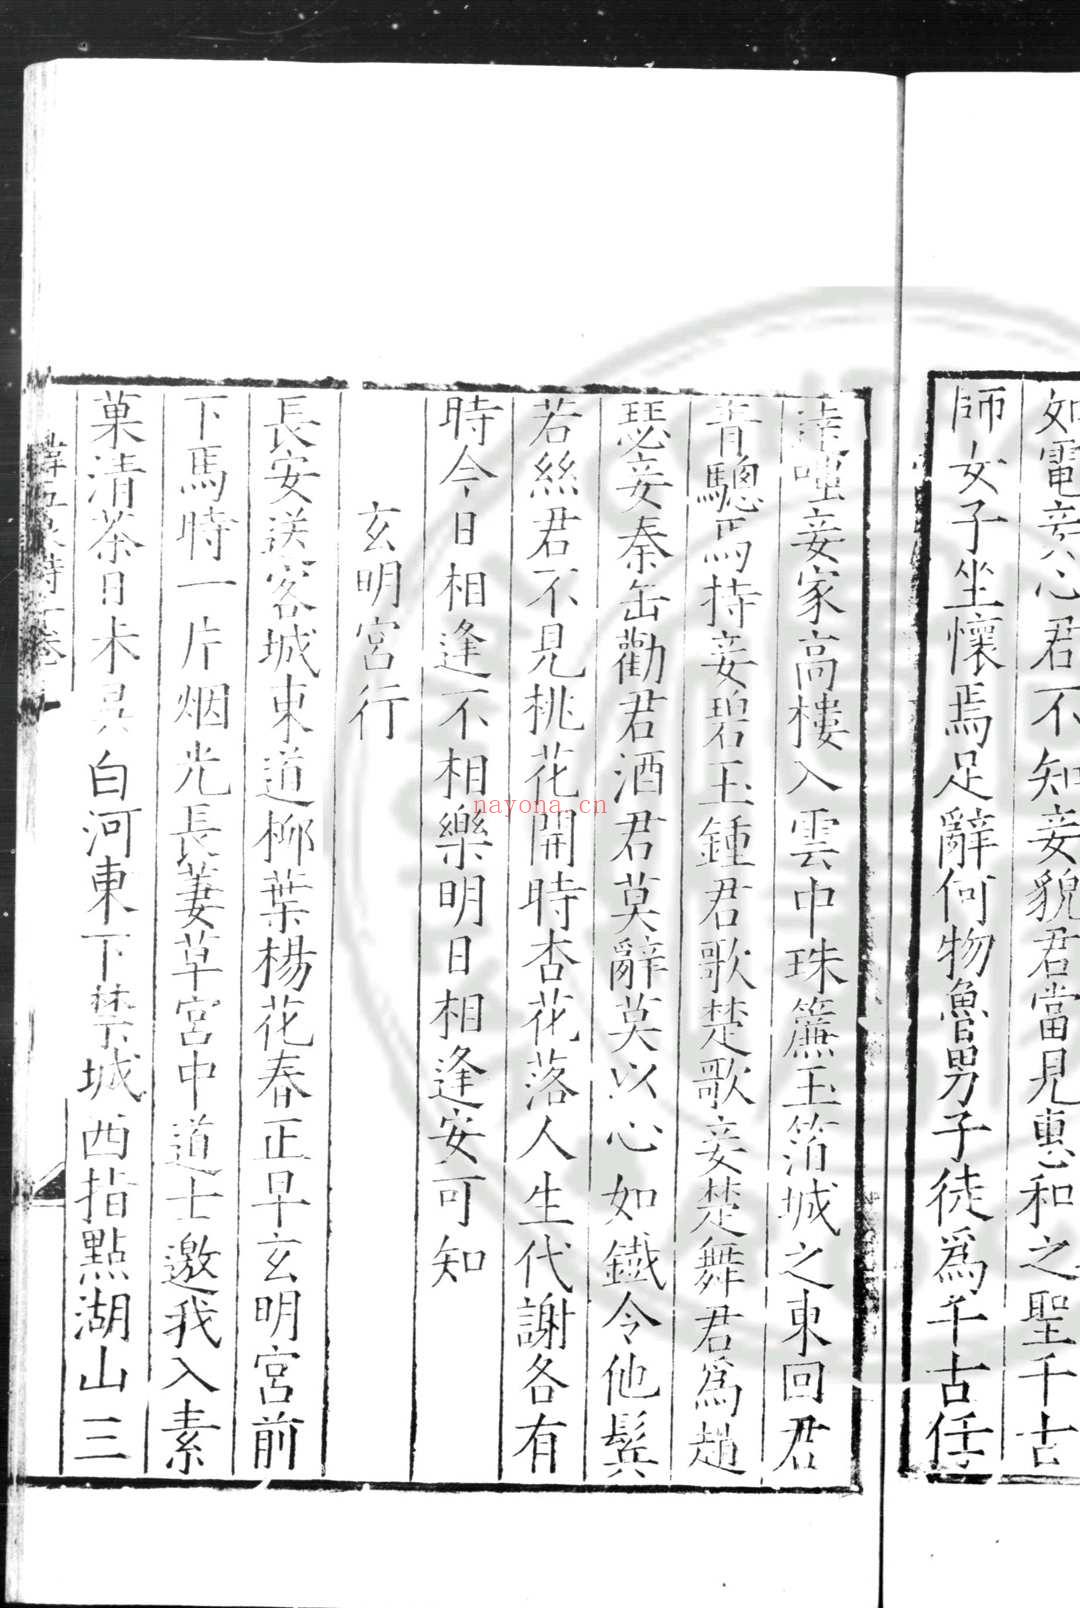 如電妾心君不知妾貌君當見惠和之聖千古
師女子坐懷焉足辭何物魯男子徒爲千古任
妾家高樓入雲中珠簾玉箔城之東回君
青驄馬持妾碧玉鍾君歌楚歌妾楚舞君爲趙
瑟妾秦缶勸君酒君莫辭莫以心如鐵令他鬢
若絲君不見桃花開時杏花落人生代謝各有
時今日相逢不相樂明日相逢安可知
玄明宮行
長安送客城東道柳葉楊花春正早玄明宮前
下馬時一片烟光長萋草宮中道士邀我入素
菓清茶日未昃白河東下禁城西指點湖山三
nayona.cn